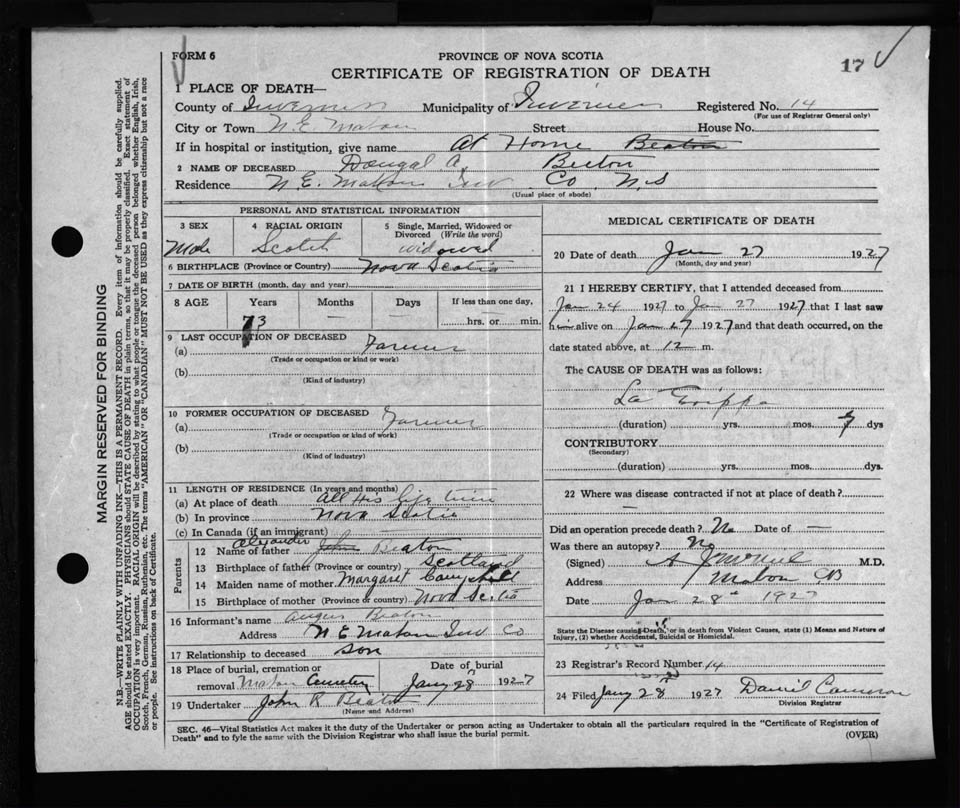 FORM 6
PROVINCE OF NOVA SCOTIA
CERTIFICATE OF REGISTRATION OF DEATH
17
1 PLACE OF DEATH—
County of Inverness Municipality of Inverness Registered No. 14
(For use of Registrar General only)
City or Town N E Mabou Street House No.
If in hospital or institution, give name At Home Beaton
2 NAME OF DECEASED Dougal A. Beaton
Residence N E. Mabou Inv Co N.S
(Usual place of abode)
MARGIN RESERVED FOR BINDING
N.B.—WRITE PLAINLY WITH UNFADING INK—THIS IS A PERMANENT RECORD. Every item of information should be carefully supplied.
AGE should be stated EXACTLY. PHYSICIANS should STATE CAUSE OF DEATH in plain terms, so that it may be properly classified. Exact statement of
OCCUPATION is very important. RACIAL ORIGIN will be described by stating to what people or tongue the deceased person belonged whether English, Irish,
Scotch, French, German, Russian, Ruthenian, etc. The terms "AMERICAN" OR "CANADIAN" MUST NOT BE USED as they express citizenship but not a race
or people. See instructions on back of Certificate.
PERSONAL AND STATISTICAL INFORMATION
3 SEX
4 RACIAL ORIGIN
5 Single, Married, Widowed or
Divorced (Write the word)
Male Scotch widowed
6 BIRTHPLACE (Province or Country) Nova Scotia
7 DATE OF BIRTH (month, day, and year)
8 AGE Years Months Days If less than one day,
73 — — hrs. or min.
9 LAST OCCUPATION OF DECEASED
(a) Farmer
(Trade or occupation or kind or work)
(b)
(Kind of industry)
10 FORMER OCCUPATION OF DECEASED
(a) Farmer
(Trade or occupation or kind of work)
(b)
(Kind of industry)
11 LENGTH OF RESIDENCE (In years and months)
(a) At place of death All His life time
(b) In province Nova Scotia
(c) In Canada (if an immigrant)
Parents
Alexander
12 Name of father John Beaton
13 Birthplace of father (Province or country) Scotland
14 Maiden name of mother Margaret Campbell
15 Birthplace of mother (Province or country) Nova Scotia
16 Informant's name Angus Beaton
Address N E Mabou Inv Co
17 Relationship to deceased son
18 Place of burial, cremation or
removal Mabou Cemetery
Date of burial
Jany 28 1927
19 Undertaker John R Beaton
(Name and Address)
MEDICAL CERTIFICATE OF DEATH
20 Date of death Jan 27 1927
(Month, day and year)
21 I HEREBY CERTIFY, that I attended deceased from
Jan 24 1927 to Jan 27 1927 that I last saw
him alive on Jan 27 1927 and that death occurred, on the
date stated above, at 12 m.
The CAUSE OF DEATH was as follows:
La Grippe
(duration) yrs. mos. 7 dys
CONTRIBUTORY
(Secondary)
(duration) yrs. mos. dys.
22 Where was disease contracted if not at place of death?
—
Did an operation precede death? No Date of —
Was there an autopsy? No
(Signed) M.D.
Address Mabou CB
Date Jan 28th 1927
State the Disease causing Death, or in death from Violent Causes, state (1) Means and Nature of
Injury, (2) whether Accidental, Suicidal or Homicidal.
23 Registrar's Record Number 14
24 Filed Jany 28 1927 Daniel Cameron
Division Registrar
SEC. 46—Vital Statistics Act makes it the duty of the Undertaker or person acting as Undertaker to obtain all the particulars required in the "Certificate of Registration of
Death" and to fyle the same with the Division Registrar who shall issue the burial permit.
(OVER)